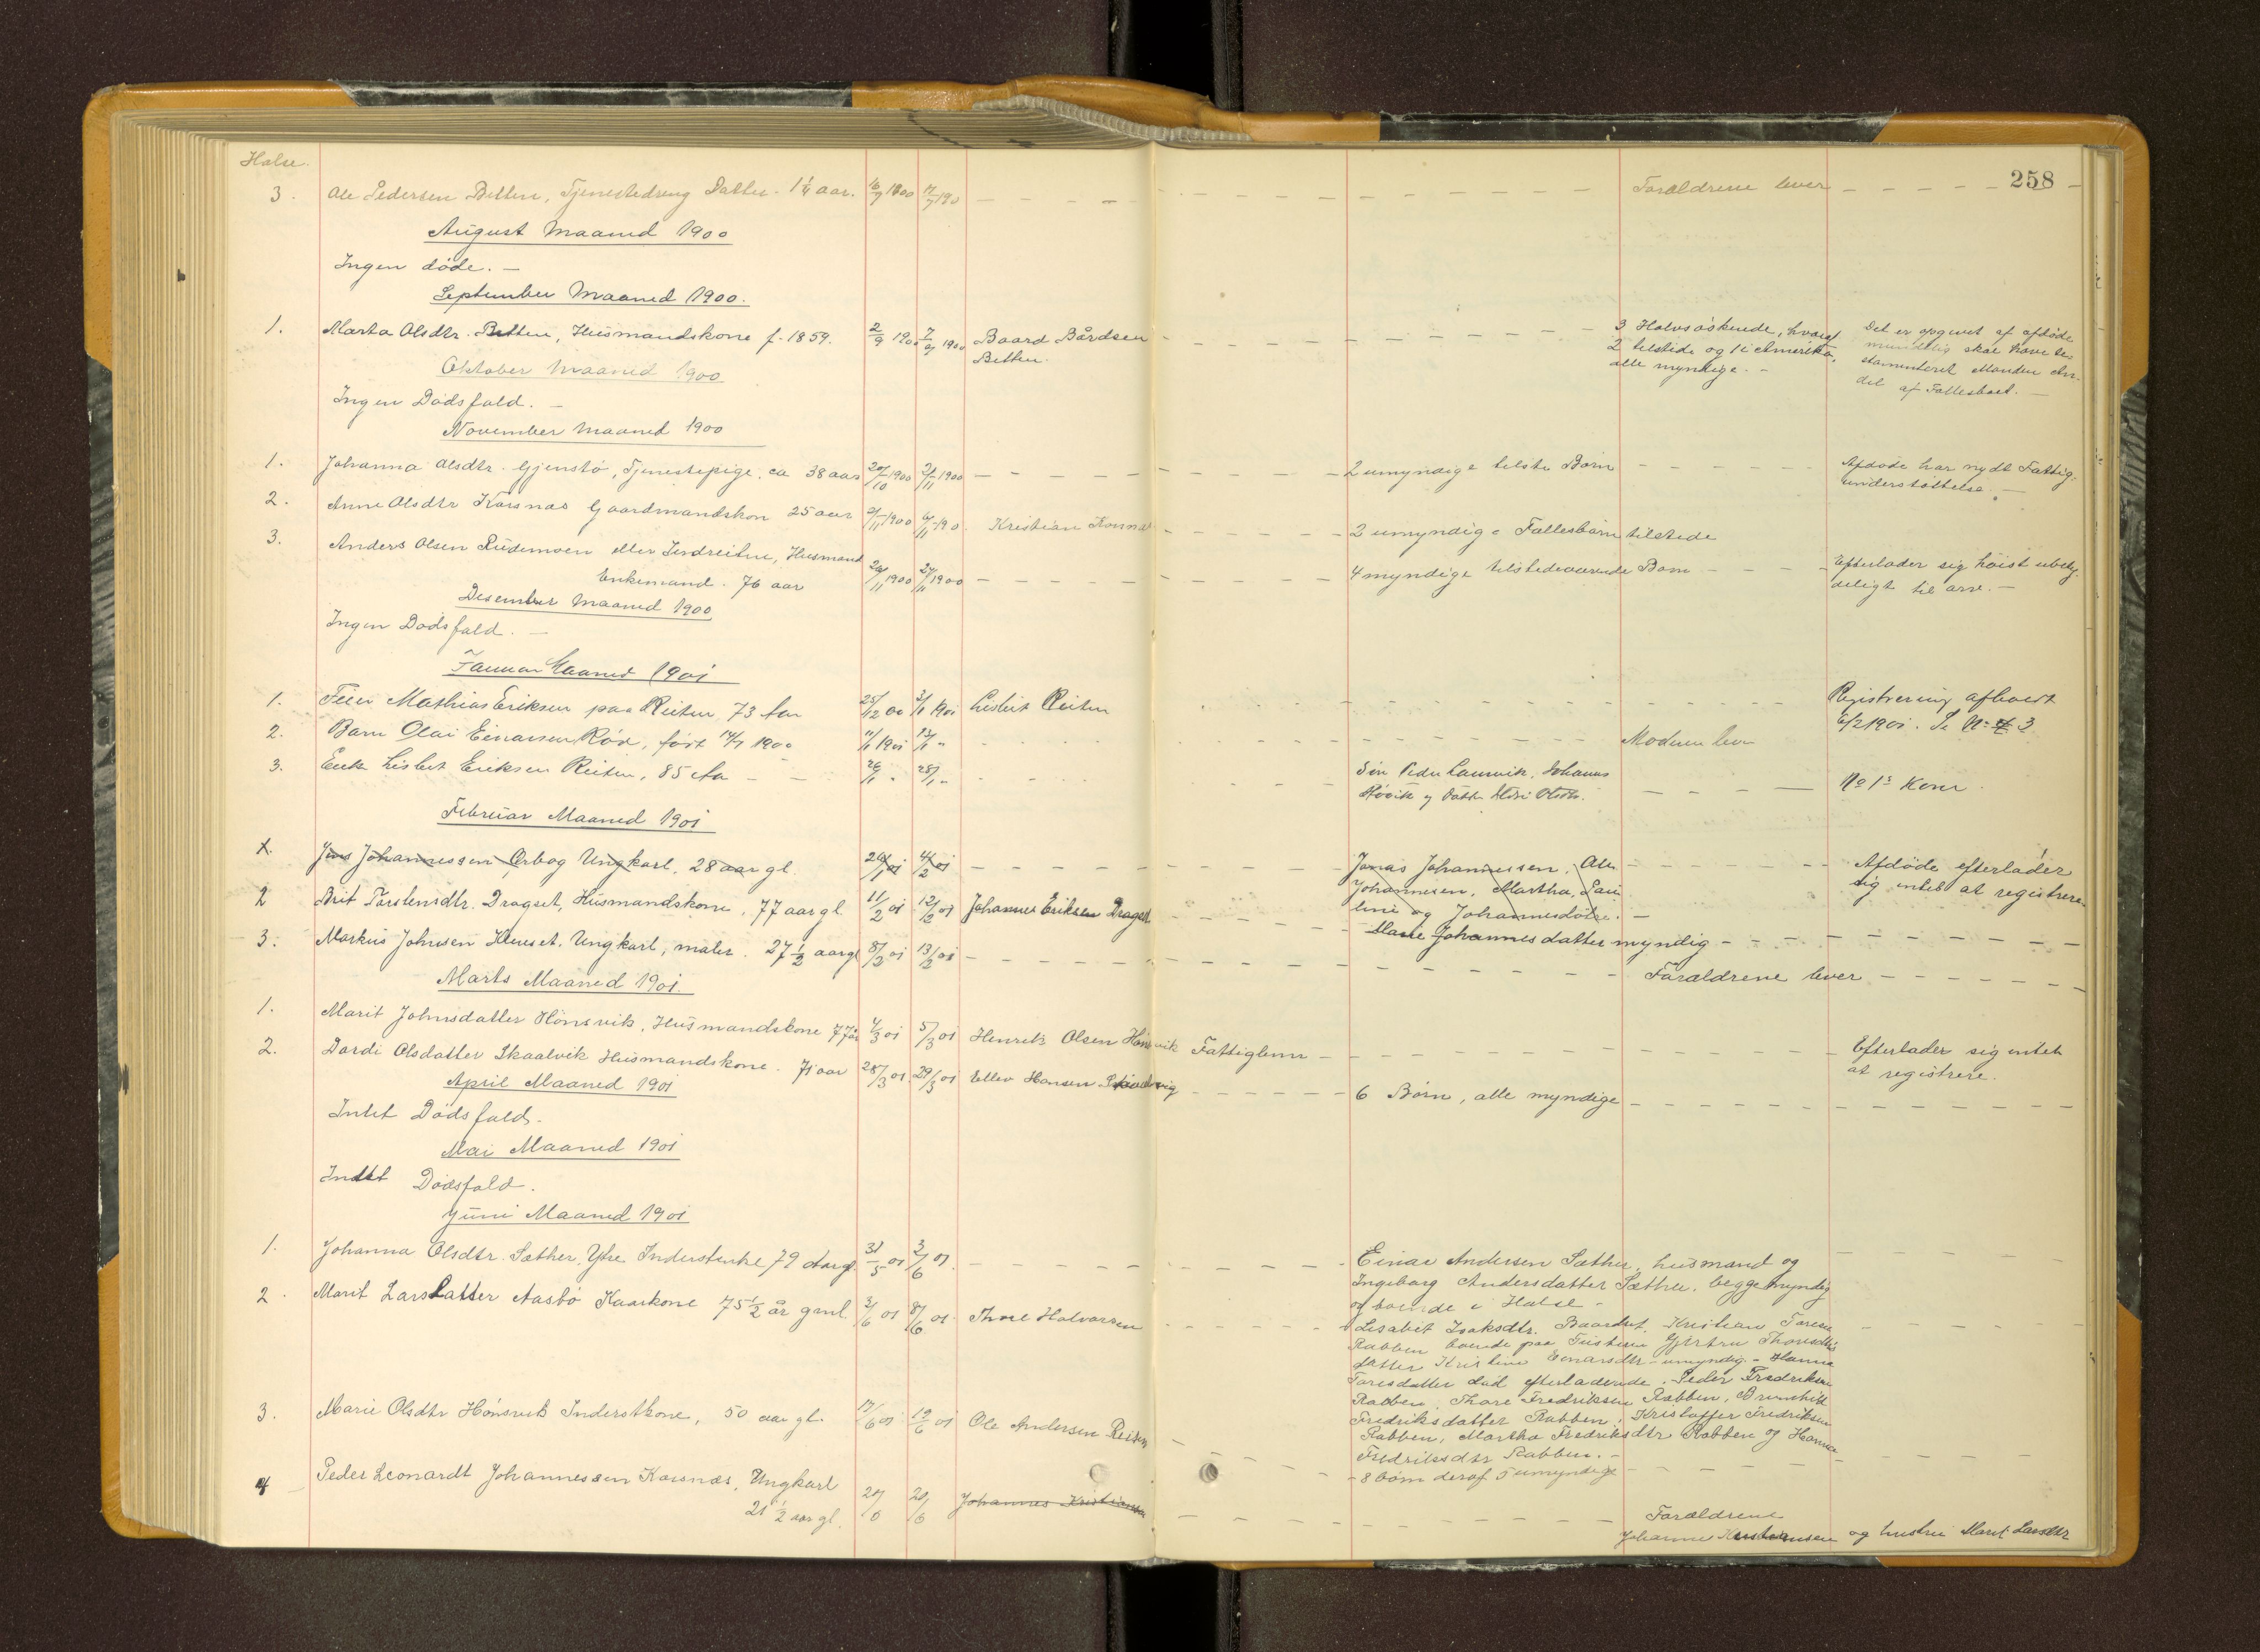 Halse.
258
3. Ole Pedersen Betten, Tjenestedreng Datter. 1 1/4 aar. 16/7 1900 17/7 190 Forældrene lever
August Maaned 1900
Ingen døde. —
September Maaned 1900.
1. Marta Olsdtr. Betten, Husmandskone f. 1859. 2/9 1900 7/9 1900 Baard Bårdsen
Betten.
3 Halvsøskende, hvoraf
2 tilstede og 1 i Amerika,
alle myndige. -
Det er opgivet af afdøde
mundtlig skal have te-
stamenteret Manden An-
del af Fællesboet. —
Oktober Maaned 1900
Ingen Dødsfald. —
November Maaned 1900
1. Johanna Olsdtr. Gjenstø, Tjenestepige. ca 38 aar /10 1900 /11 1900 2 umyndige tilste Børn
Afdøde har nydt Fattig-
understøttelse. —
2. Anne Olsdtr Karsnæs Gaardmandskon 25 aar 2/11 1900 6/11 190 Kristian 2 umyndige Fællesbørn tilstede
3. Anders Olsen eller Husmand
Enkemand. 76 aar /11 1900 /11 1900 4 myndige tilstedeværende Børn
Efterlader sig høist ubety-
deligt til arv. —
Desember Maaned 1900
Ingen Dødsfald. —
Januar Maaned 1901
1. Mathias Eriksen paa Reiten, 73 Aar 25/12 00 3/1 1901 Lisbet Reiten
Registrering afholdt
6/2 1901. Se No 3
2. Barn Olai Einarsen Rød, født 14/7 1900 11/1 1901 13/1 " Moderen lever
3. Enke Lisbet Eriksen Reiten, 85 Aar 26/1 " 28/1 "
Søn Peder Johannes
og Datt. Olsdtr.
No 1s Kone.
Februar Maaned 1901
1. Jens Johannessen Ørbog Ungkarl. 28 aar gl. 26/1 01 4/2 01
Jonas Johannessen, Ole
Johannesen, Martha, Pau-
line og Johannesdøtre. —
Afdøde efterlader
sig intet at registrere
2 Brit Torstensdtr. Dragset, Husmandskone, 77 aar gl 11/2 01 12/2 01 Johannes Eriksen Dragset
Marie Johannesdatter myndig
3. Markus Johnsen Henset. Ungkarl, maler. 27 1/2 aar gl 8/2 01 13/2 01 Forældrene lever
Marts Maaned 1901.
1. Marit Johnsdatter Hønsvik, Husmandskone 77 år 4/3 01 5/3 01 Henrik Olsen Hønsvik Fattiglem
Efterlader sig intet
at registrere.
2. Dordi Olsdatter Skaalvik Husmandskone. 71 aar 28/3 01. 29/3 01 Ellev Hansen 6 Børn, alle myndige
April Maaned 1901
Intet Dødsfald.
Mai Maaned 1901
Indtet Dødsfald.
Juni Maaned 1901
1. Johanna Olsdtr. Sæther, Ytre Inderstenke 79 Aar gl. 31/5 01 3/6 01.
Einar Andersen Sæther, husmand og
Ingeborg Andersdatter Sæther. begge myndig
og boende i Halse -
2. Marit Larsdatter Aasbø Kaarkone 75 1/2 år gml. 3/6 01 8/6 01. Thore Halvorsen
Lisabet Isaksdtr. Baardset, Kristian Toresen
Rabben boende paa Tusteren Gjertru Thoresdtrs
datter Kristine Einarsdtr - umyndig. - Hanna
Toresdatter død efterladende. Peder Fredriksen
Rabben, Thore Fredriksen Rabben, Brunhild
Fredriksdatter Rabben, Kristoffer Fredriksen
Rabben, Martha Fredriksdtr Rabben og Hanna
Fredriksdtr Rabben. -
3. Marie Olsdtr Hønsvik Inderstkone, 50 aar gl. 17/6 01 19/6 01 Ole Andersen Reiten
8 børn deraf 5 umyndige
4 Peder Leonardt Johannessen Karsnæs, Ungkarl
21 1/2 aar gl. /6 /6 Johannes Kristiansen
Forældrene
Johannes Kristiansen og hustru Marit Larsdtr